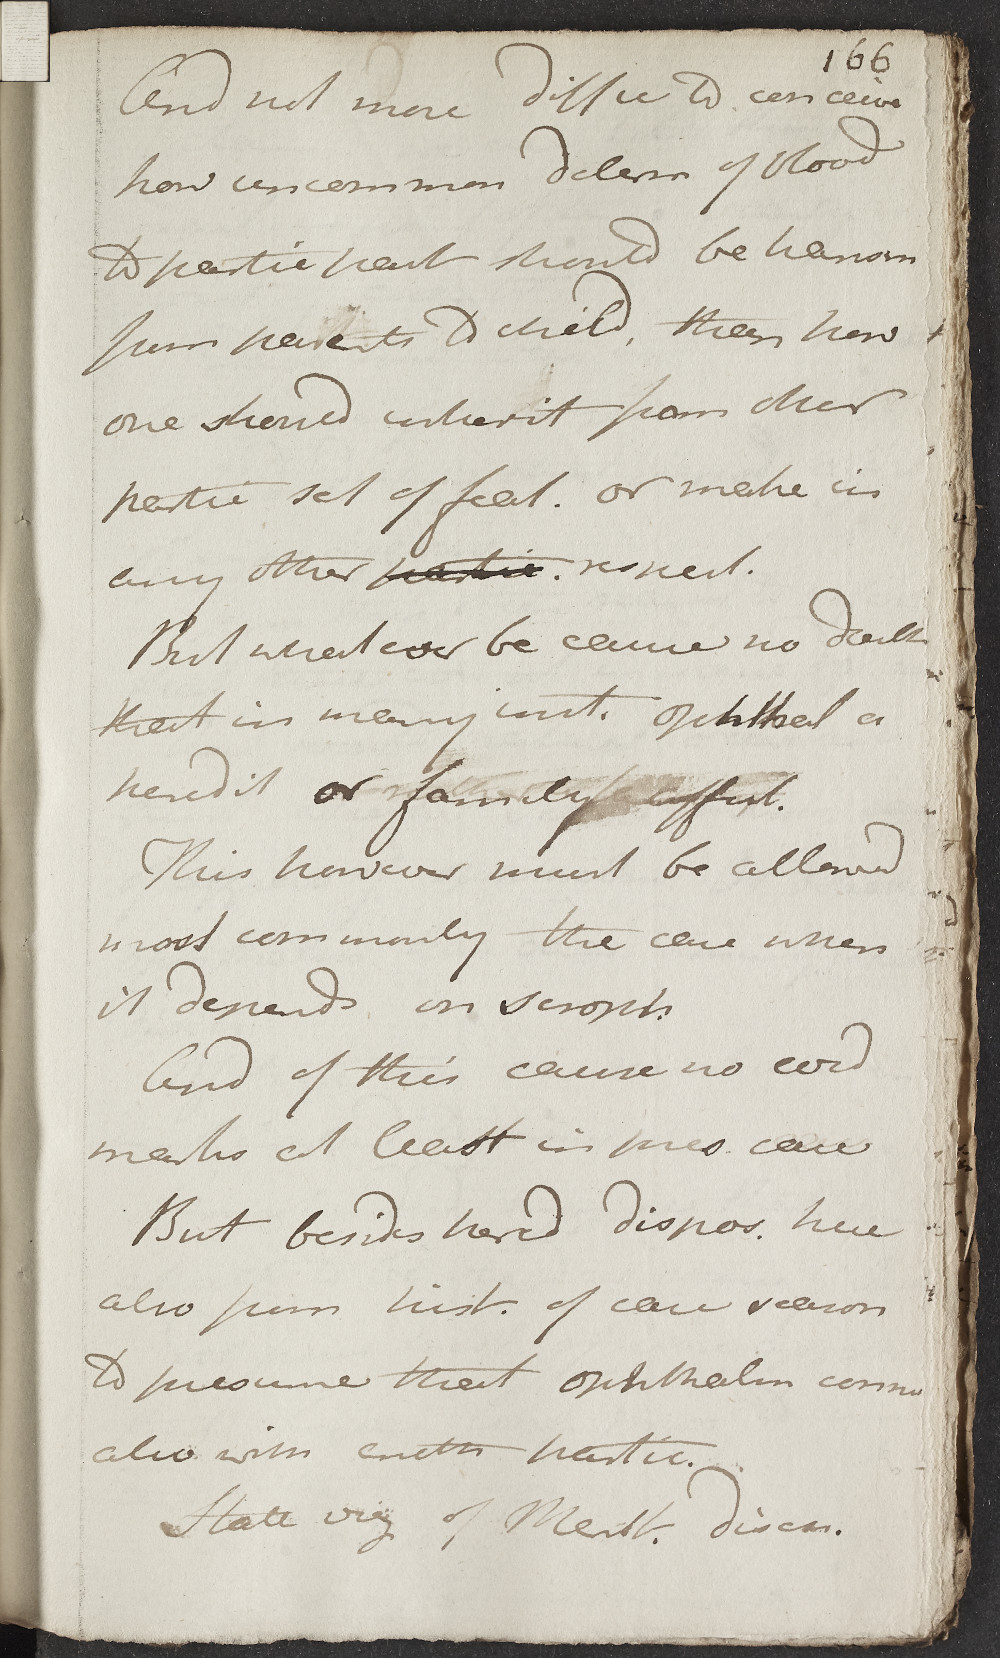 166
And not more difficu to conceive
how uncommon determ of blood
to particu part should be transm
from parents to child, than how
one should inherit from other
particu set of feat. or make in
any other particu. respect.
But whatever be cause no doubt
that in many inst. ophthal a
heredit or family affect.
This however must be allowed
most commonly the case when
it depends on scroph.
And of this cause no evid
marks at least in pres. case
But besides hered dispos. have
also from hist. of case reason
to presume that ophthalm conn
also with anoth particu.
State viz of Menst. discn.